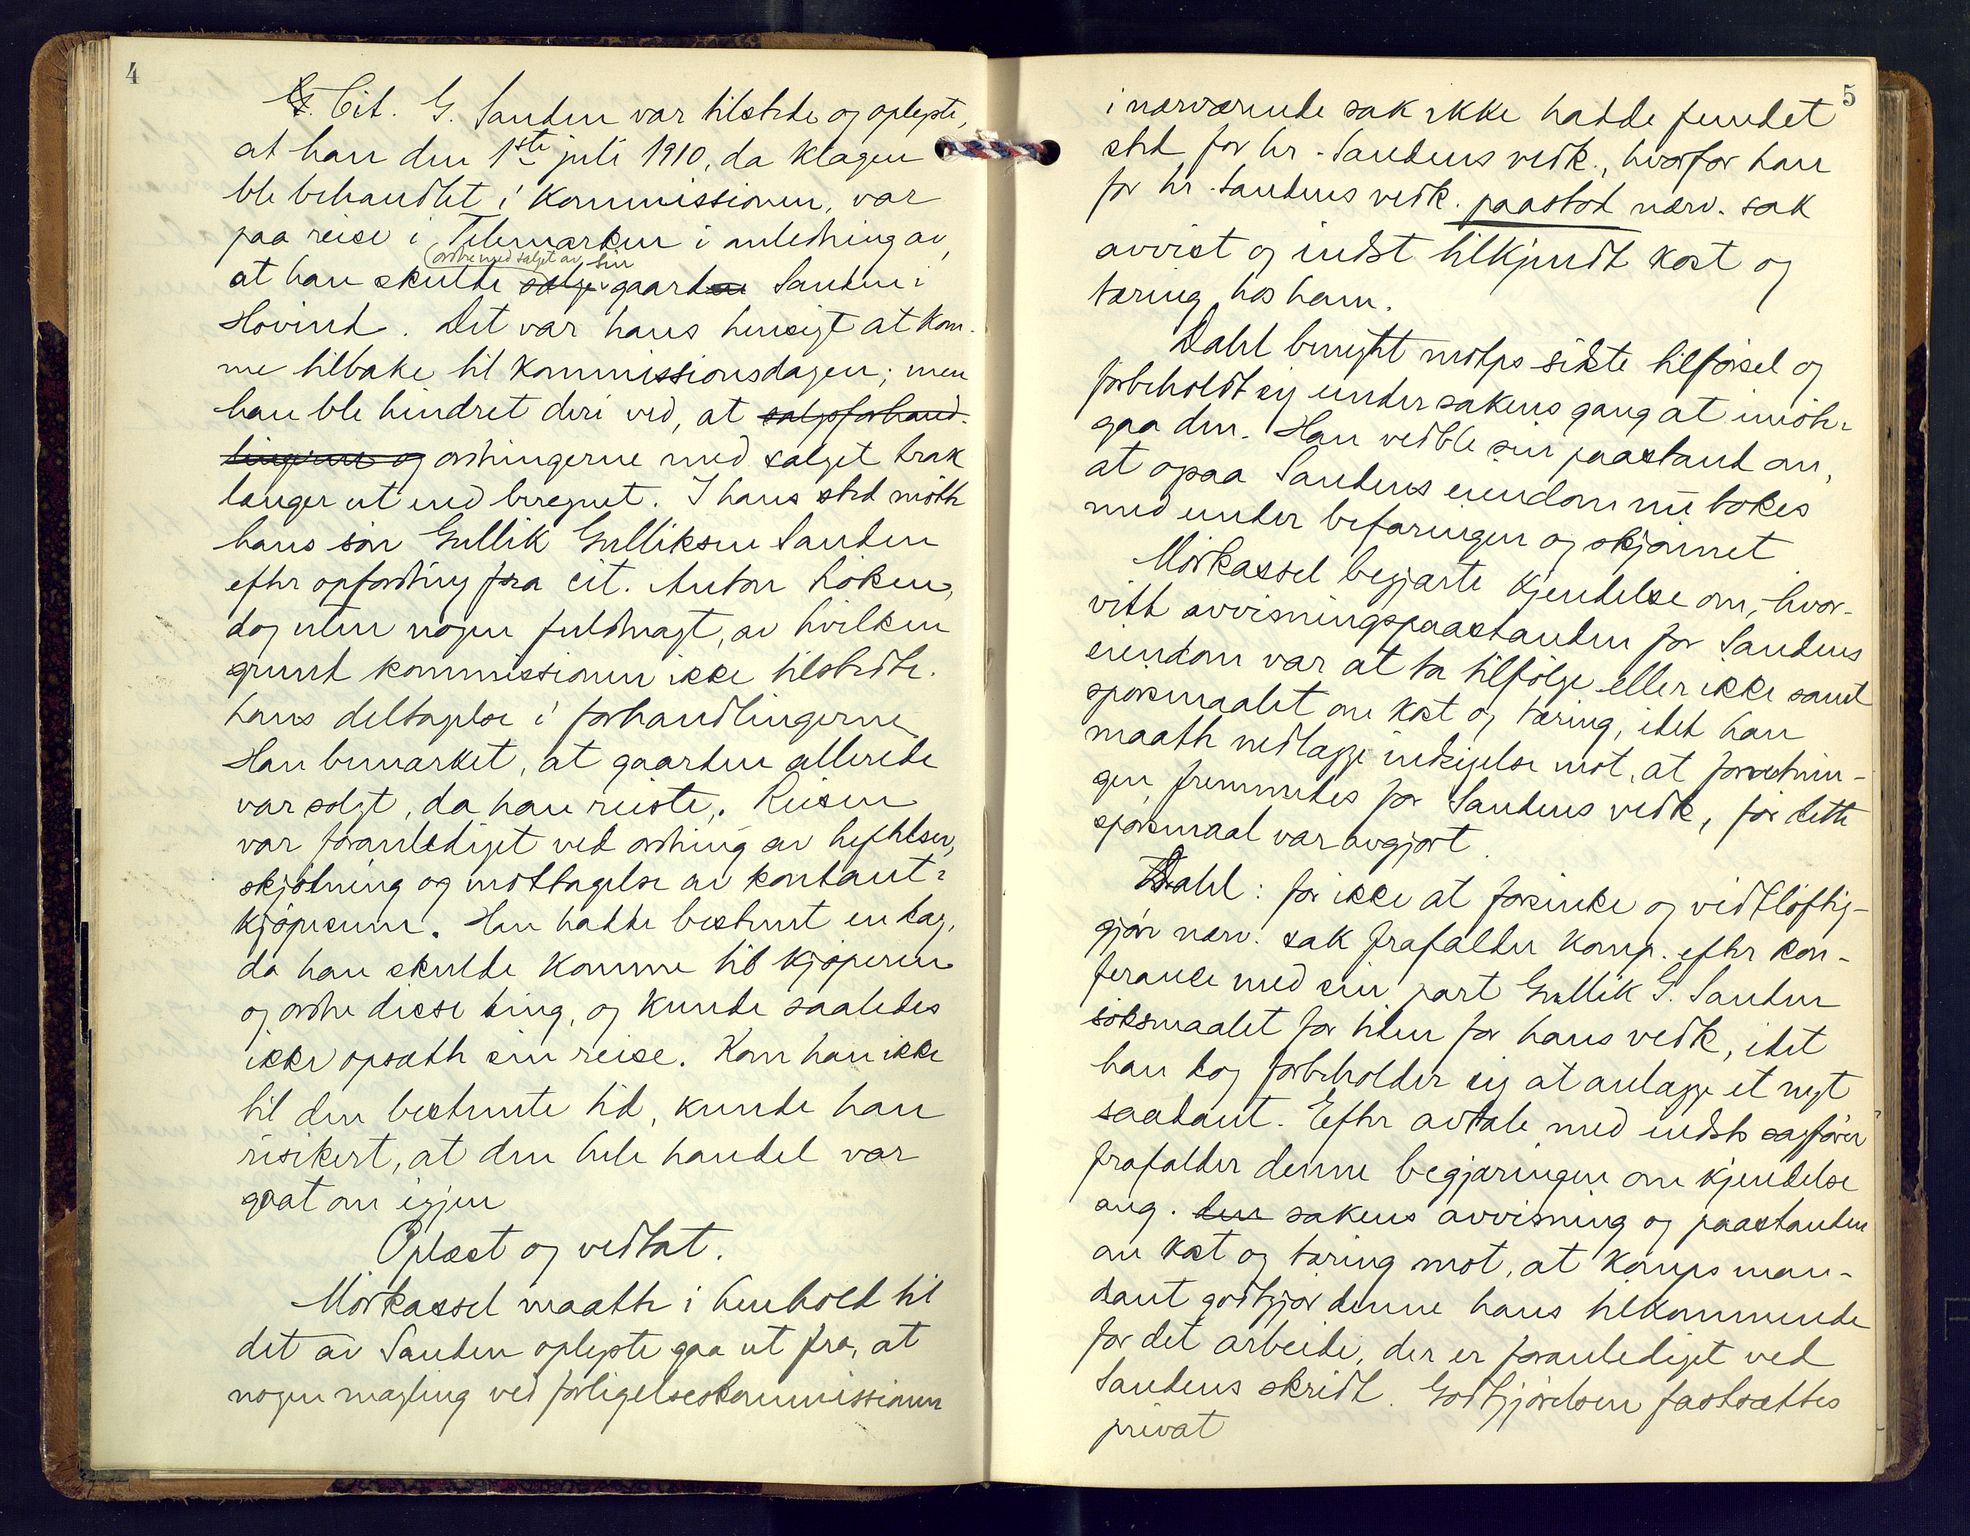 4
Cit. G. Sanden var tilstede og oplyste,
at han den 1ste juli 1910, da klagen
ble behandlet i kommissionen, var
paa reise i Telemarken i anledning av,
at han skulde salge (ordne med salget av sin gaarden Sanden i
Hovind. Det var hans hensigt at kom-
me tilbake til kommissionsdagen; men
han ble hindret deri ved, at salgsforhand-
lingerne og ordningerne med salget trak
længer ut end beregnet. I hans sted møtte
hans søn Gullik Gulliksen Sanden
efter opfordring fra cit. Anton Løken,
dog uten nogen fuldmagt, av hvilken
grund kommissionen ikke tilstedte
hans deltagelse i forhandlingerne
Han bemærket, at gaarden allerede
var solgt, da han reiste. Reisen
var foranlediget ved ordning av heftelser,
skjøtning og mottagelse av kontant-
kjøpesum. Han hadde bestemt en dag,
da han skulde komme til kjøperen
og ordne disse ting, og kunde saaledes
ikke opsætte sin reise. Kom han ikke
til den bestemte tid, kunde han
risikert, at den hele handel var
gaat om igjen
Oplæst og vedtat.
Mørkassel maatte i henhold til
det av Sanden oplyste gaa ut fra, at
nogen mægling ved forligelseskommissionen
5
i nærværende sak ikke hadde fundet
sted for hr. Sandens vedk., hvorfor han
for hr. Sandens vedk. paastod nærv. sak
avvist og indst tilkjendt kost og
tæring hos ham.
Dahl benegtet motps sidste tilførsel og
forbeholdt sig under sakens gang at imøte-
gaa den. Han vedble sin paastand om,
at ogsaa Sandens eiendom nu tokes
med under befaringen og skjønnet
Mørkassel begjærte kjendelse om, hvor-
vidt avvisningspaastanden for Sandens
eiendom var at ta tilfølge eller ikke samt
spørsmaalet om kost og tæring, idet han
maatte nedlægge indsigelse mot, at forretnin-
gen fremmedes for Sandens vedk, før dette
spørsmaal var avgjort.
Dahl: for ikke at forsinke og vidtløftig-
gjøre nærv. sak frafalder komp. efter kon-
ferance med sin part Gullik G. Sanden
søksmaalet for tiden for hans vedk, idet
han dog forbeholder sig at anlægge et nyt
saadant. Efter avtale med indst sagfører
frafalder denne begjæringen om kjendelse
ang. den sakens avvisning og paastanden
om kost og tæring mot, at komps man-
dant godtgjør denne hans tilkommende
for det arbeide, der er foranlediget ved
Sandens skridt. Godtgjørelsen fastsættes
privat